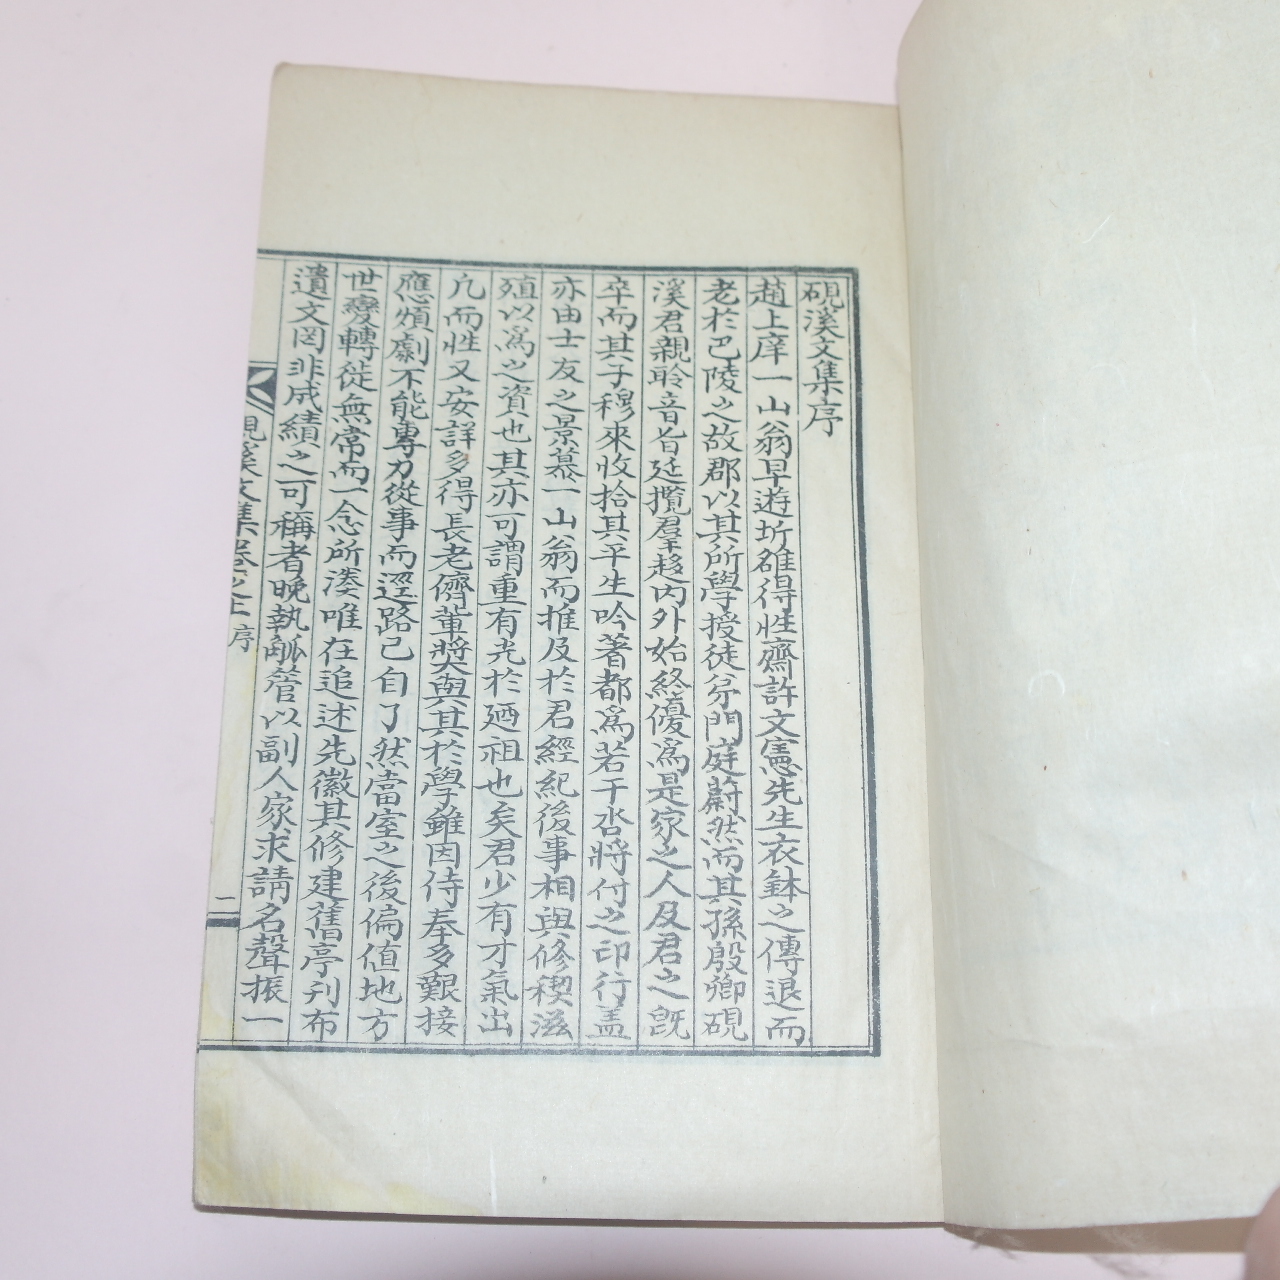 硯溪文集序
趙上庠一山翁早遊圻雄得性齋許文憲先生衣鉢之傳退而
老於巴陵之故郡以其所學授徒分門庭蔚然而其孫殷卿硯
溪君親聆音旨廷攬羣趍內外始終優爲是家之人及君之旣
卒而其子穆來收拾其平生吟著都爲若干呇將付之印行盖
亦由士友之景慕一山翁而推及於君經紀後事相與修稧滋
殖以爲之資也其亦可謂重有光於廼祖也矣君少有才氣出
凡而性又安詳多得長老儕軰奬與其於學雖因侍奉多艱接
應煩劇不能專力從事而逕路已自了然當室之後偏値地方
世變轉徙無常而一念所湊唯在追述先徽其修建舊亭刋布
遺文罔非成績之可稱者晩執觚管以副人家求請名聲振一
硯溪文集卷之上 序 一